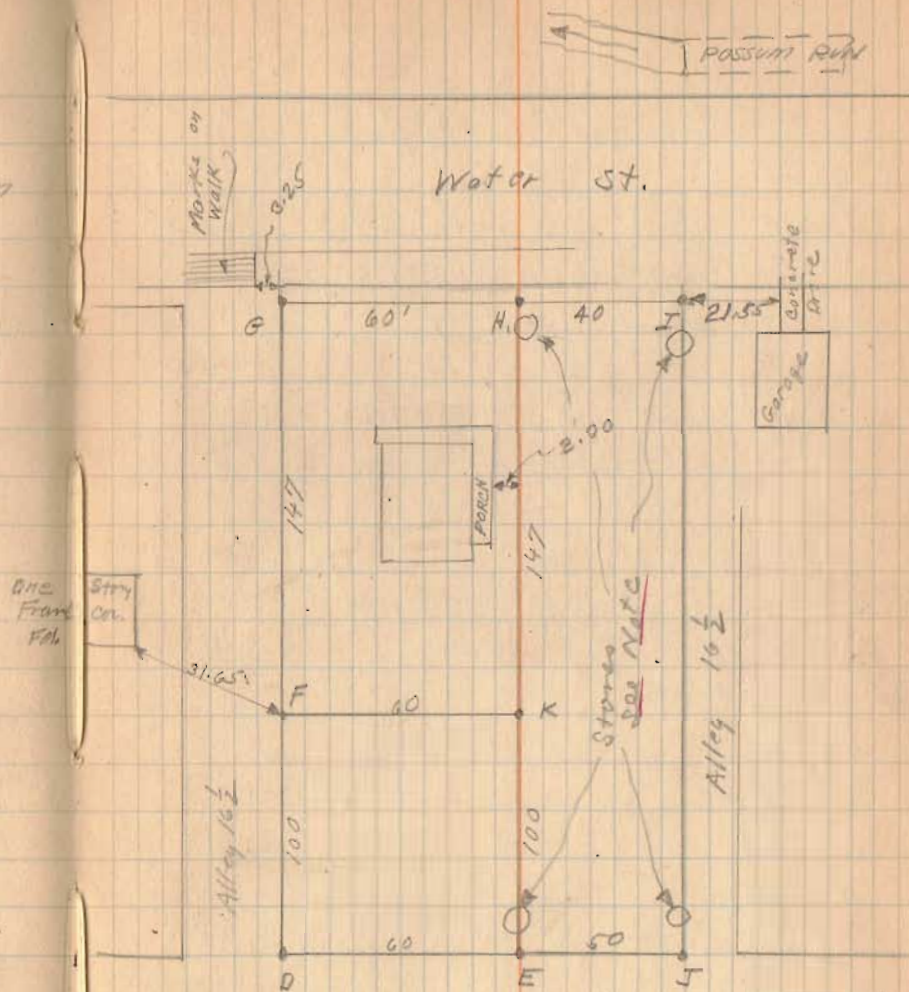 POSSUM RUN
Marks on
Walk
Water St.
3.25
Concrete
Drive
G
60'
H.
40
I
21.55
Garage
2.00
PORCH
147
147
One Story
Frame Cor.
31.65
F
60
K
Stones
See Note
Alley 16 1/2
Alley 16 1/2
100
100
60
50
D
E
J